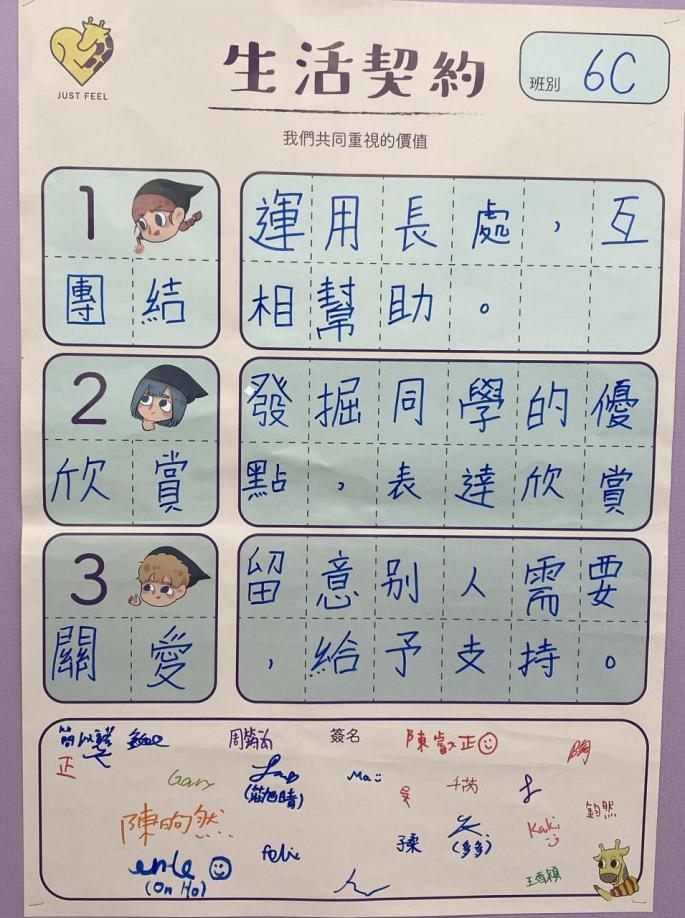 JUST FEEL
生活契約
班別 6C
我們共同重視的價值
1
團結
運用長處，互
相幫助。
2
欣賞
發掘同學的優
點，表達欣賞
3
關愛
留意別人需要
，給予支持。
簽名
陳叡正
正
Gary
Ma
吳
千芮
鈞然
陳昫然
Kaki
子柔
(多多)
Felix
(On Ho)